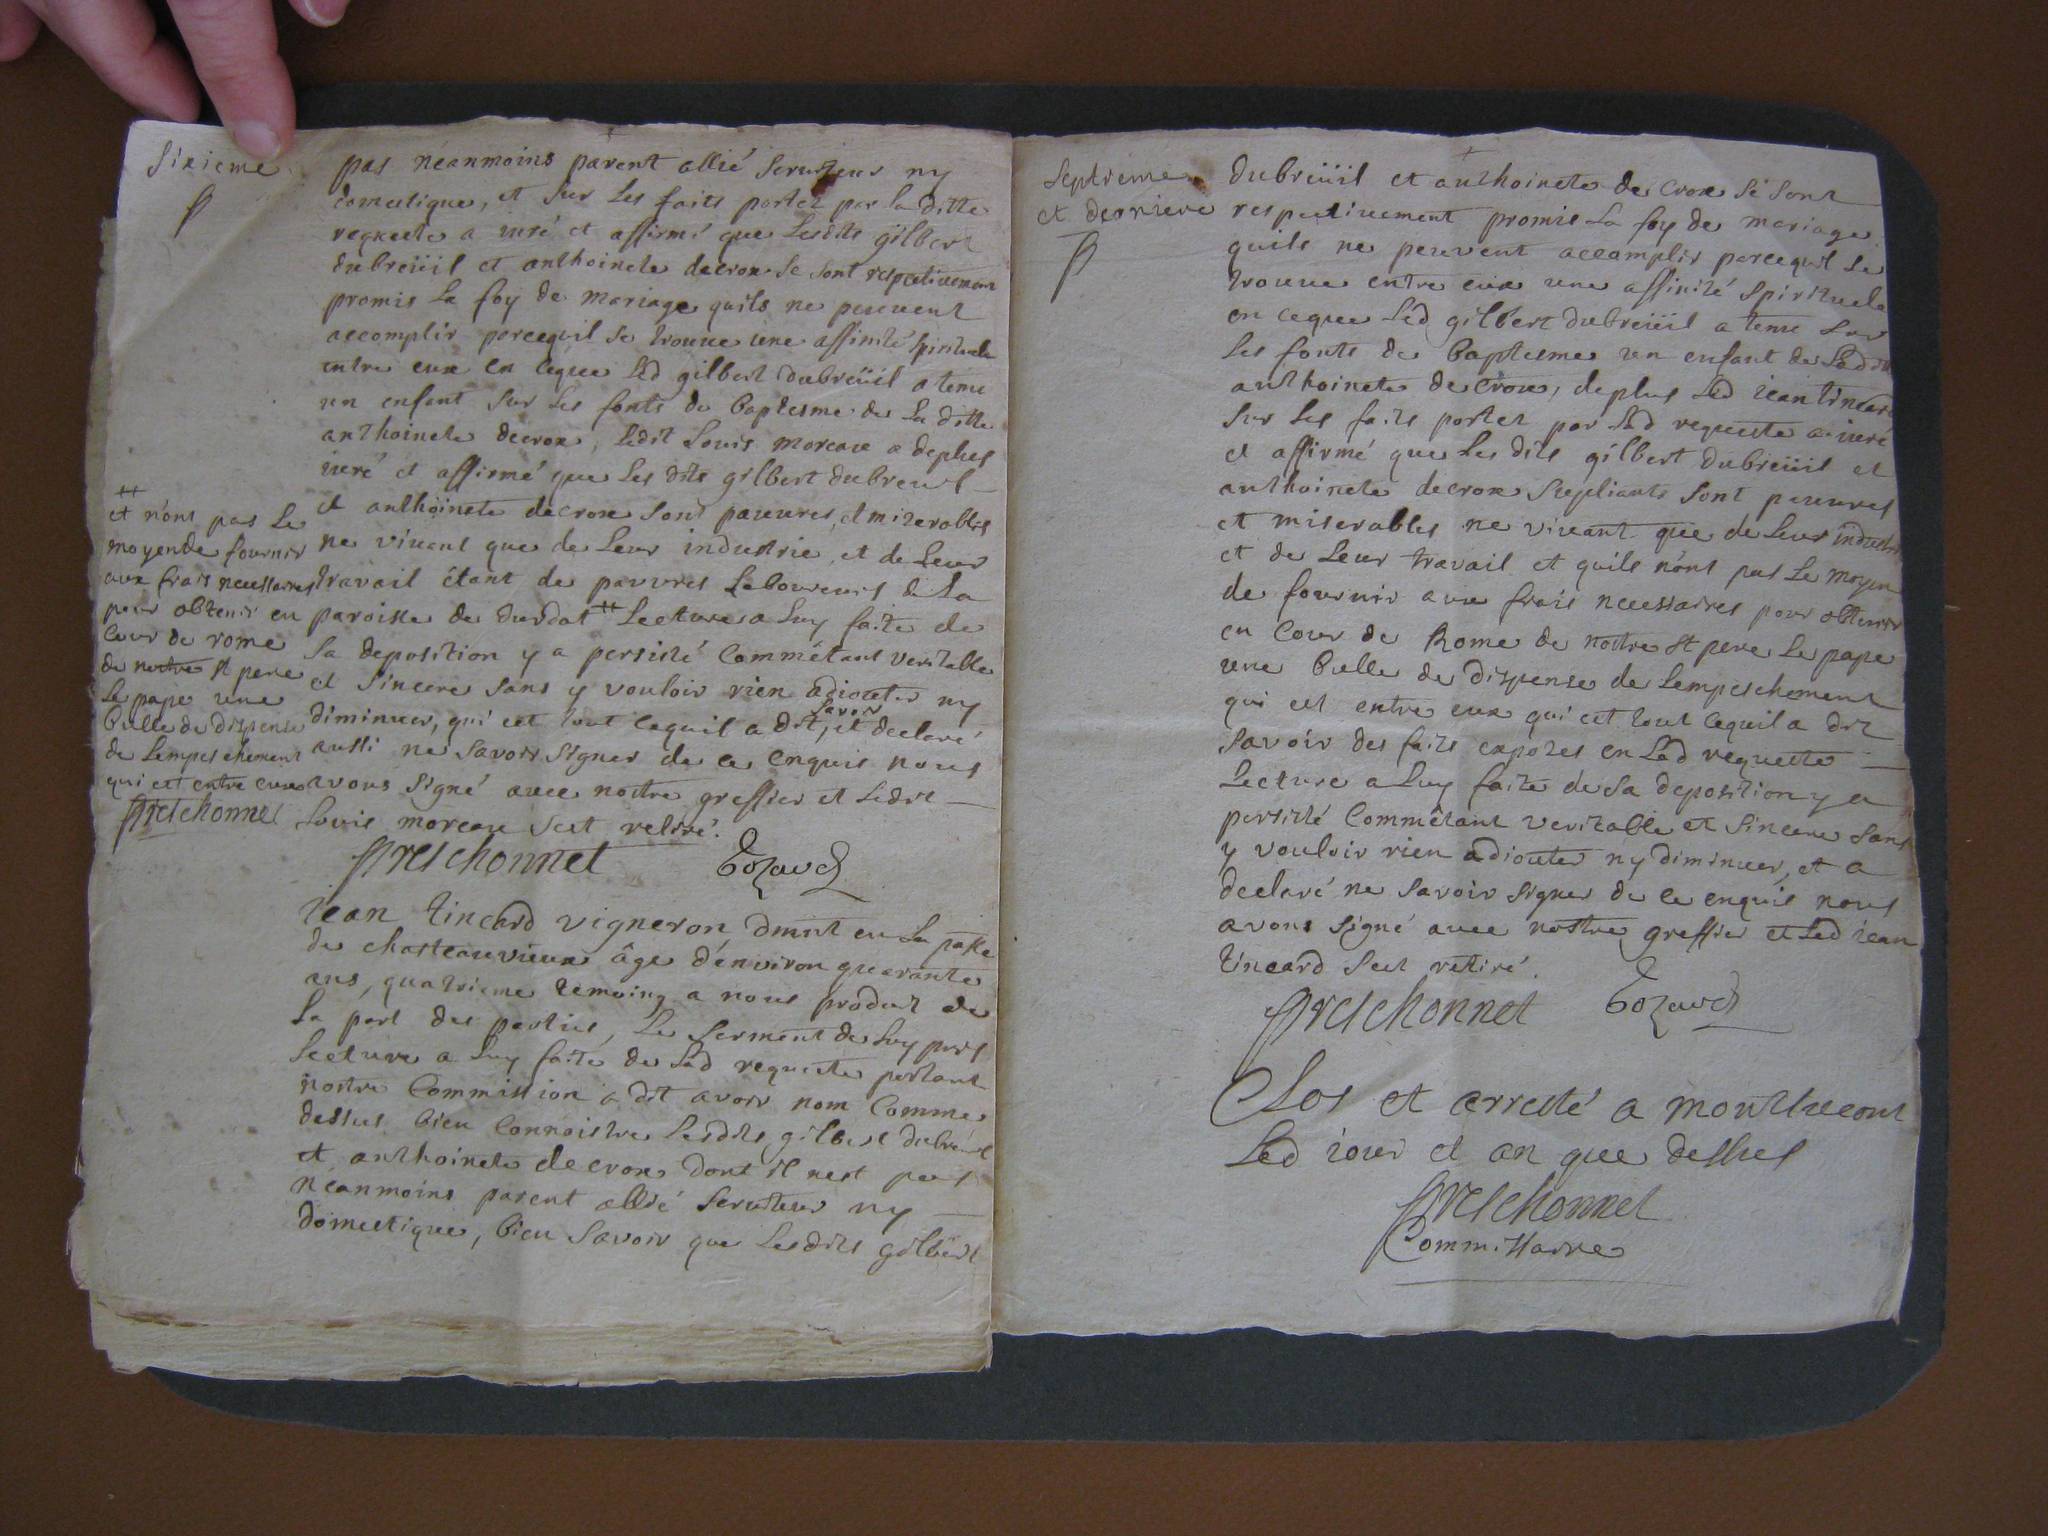 Sixieme
pas néanmoins parent allié serviteur ny
domestique, et sur les faits portez par la ditte
requeste a juré et affirmé que lesdits gilbert
dubreüil et anthoinete decrox se sont respectivement
promis la foy de mariage quils ne peuvent
accomplir parcequil se trouve une affinité spirituele
entre eux en ceque led gilbert dubreüil a tenu
un enfant sur les fonts de baptesme de la ditte
anthoinete decrox, ledit Louis moreau a deplus
juré et affirmé que les dits gilbert dubreuil
et anthoinete decrox sont pauvres, et miserables
ne vivant que de leur industrie, et de leur
travail étant de pauvres laboureurs de la
paroisse de durdat ++ Lecture a luy faite de
sa deposition y a persisté comme étant veritable
et sincere sans y vouloir rien adjouter ny
diminuer, qui est tout cequil a dit, savoir et declaré
aussi ne savoir signer de ce enquis nous
avons signé avec nostre greffier et ledit
Louis moreau sest retiré.
++
et n'ont pas le
moyen de fournir
aux frais necessaires
pour obtenir en
cour de rome
de nostre st pere
le pape une
bulle de dispense
de lempeschement
qui est entre eux
Preschonnet
Preschonnet
jean tincard vigneron dmnt en la passe
de chasteauvieux âge d'environ quarante
ans, quatrieme temoing a nous produit de
la part des parties, le serment de luy pris
lecture a luy faite de lad requeste portant
nostre commission a dit avoir nom comme
dessus bien connoistre lesdits gilbert dubreuil
et anthoinete decrox dont il nest pas
néanmoins parent allié serviteur ny
domestique, bien savoir que lesdits gilbert
Septieme
et derniere
dubreüil et anthoinete de crox se sont
respectivement promis la foy de mariage
quils ne peuvent accomplir parcequil se
trouve entre eux une affinité spirituele
en ceque led gilbert dubreüil a tenu sur
les fonts de baptesme un enfant de lad
anthoinete decrox, deplus led jean tincard
sur les faits portez par lad requeste a juré
et affirmé que les dits gilbert dubreüil et
anthoinete decrox supliants sont pauvres
et miserables ne vivant que de leur industrie
et de leur travail et quils n'ont pas le moyen
de fournir aux frais necessaires pour obtenir
en cour de Rome de nostre st pere le pape
une bulle de dispense de lempeschement
qui est entre eux qui est tout cequil a dit
savoir des faits exposés en lad requeste
lecture a luy faite de sa deposition y a
persisté comme étant veritable et sincere sans
y vouloir rien adjouter ny diminuer, et a
declaré ne savoir signer de ce enquis nous
avons signé avec nostre greffier et led jean
tincard sest retiré.
Preschonnet
Clos et arresté a montlucont
led jour et an que dessus
Preschonnet
Commissaire